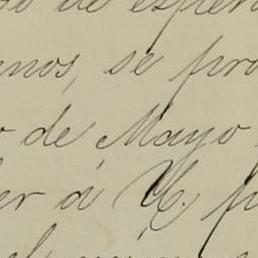 de esper
enos, se pro
o de Mayo
er á V. p